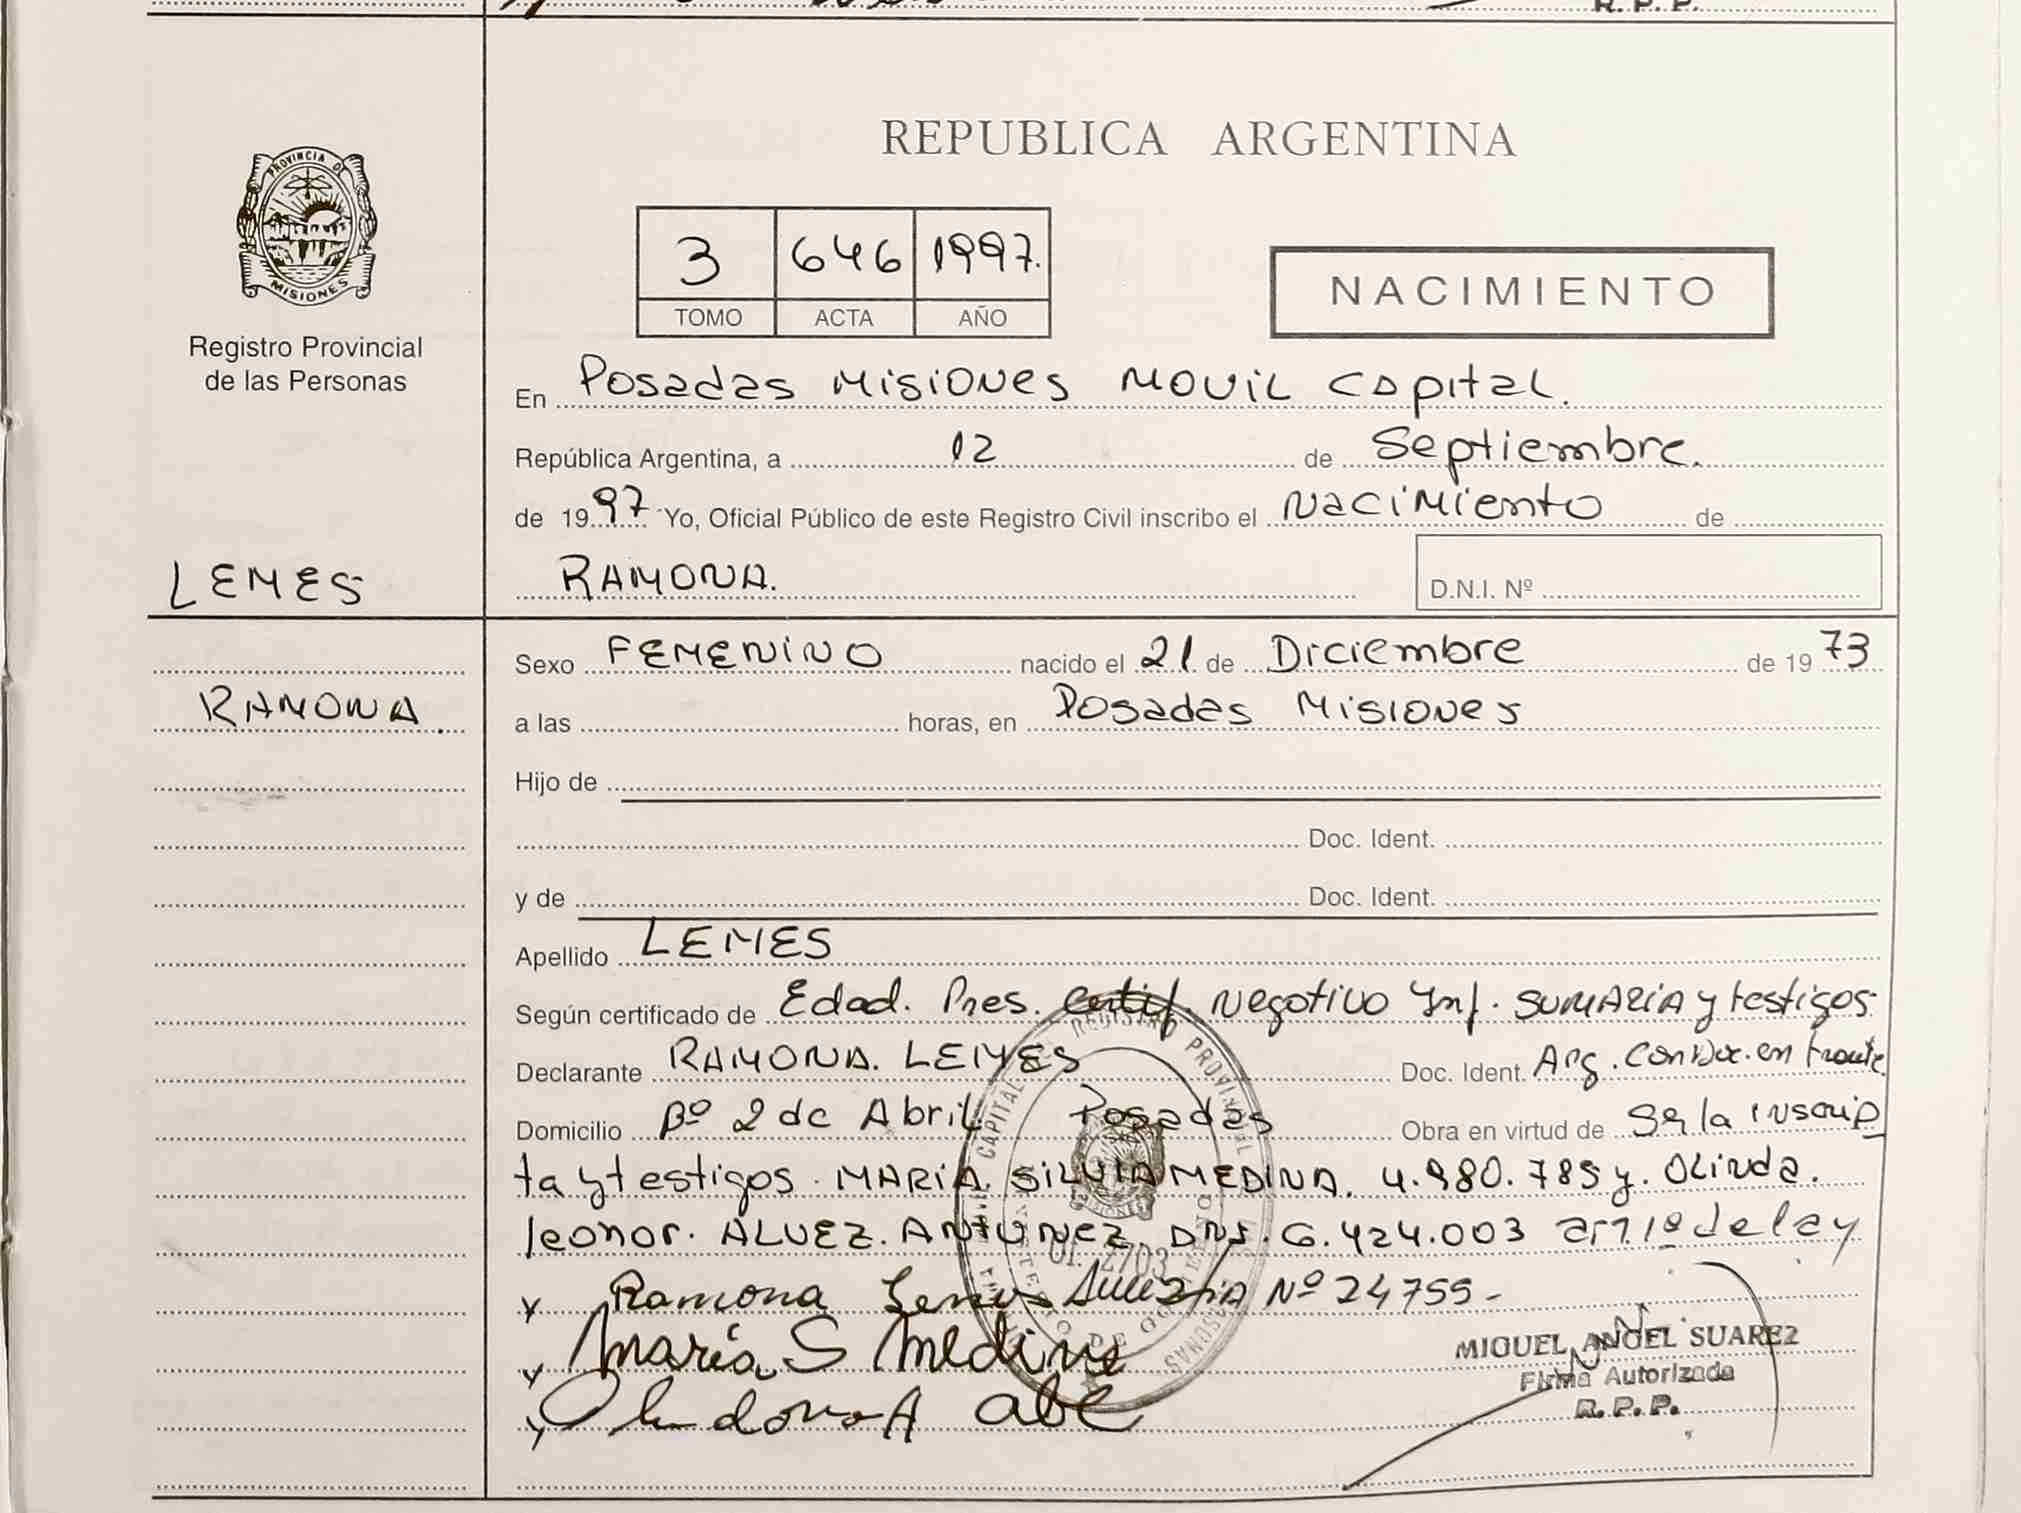 R. P. P.
PROVINCIA DE
MISIONES
Registro Provincial
de las Personas
REPUBLICA ARGENTINA
3 646 1997.
TOMO ACTA AÑO
NACIMIENTO
En Posadas Misiones Movil Capital.
República Argentina, a 12 de Septiembre.
de 1997 Yo, Oficial Público de este Registro Civil inscribo el Nacimiento de
LEMES
RAMONA.
D.N.I. Nº
Sexo FEMENINO nacido el 21 de Diciembre de 1973
RAMONA.
a las horas, en Posadas Misiones
Hijo de
Doc. Ident.
y de Doc. Ident.
Apellido LEMES
Según certificado de Edad. Pres. Certif. Negativo Inf. SUMARIA y testigos.
Declarante RAMONA. LEMES Doc. Ident. Arg. Con Doc. en tramite
Domicilio Bº 2 de Abril Posadas Obra en virtud de Ser la inscrip
ta y testigos. MARIA SILVIA MEDINA. 4.980.785 y. OLinda.
leonor. ALVEZ. ANTUNEZ. DNI. 6.424.003 art. 1º de ley
Ramona Lemes Sumaria Nº 24755-
Maria S Medina
MIGUEL ANGEL SUAREZ
Firma Autorizada
R. P. P.
REGISTRO PROVINCIAL
CAPITAL